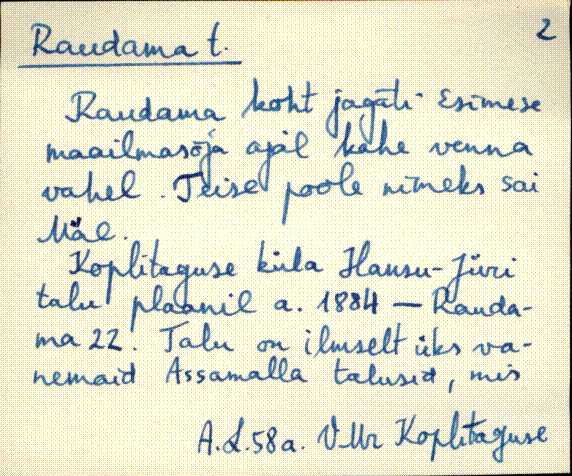 Raudama t. 2
Raudama koht jagati Esimese
maailmasõja ajal kahe venna
vahel. Teise poole nimeks sai
Mäe.
Koplitaguse küla Hansu-Jüri
talu plaanil a. 1884 — Rauda-
ma 22. Talu on ilmselt üks va-
nemaid Assamalla talusid, mis
A.L. 58 a. VMr Koplitaguse